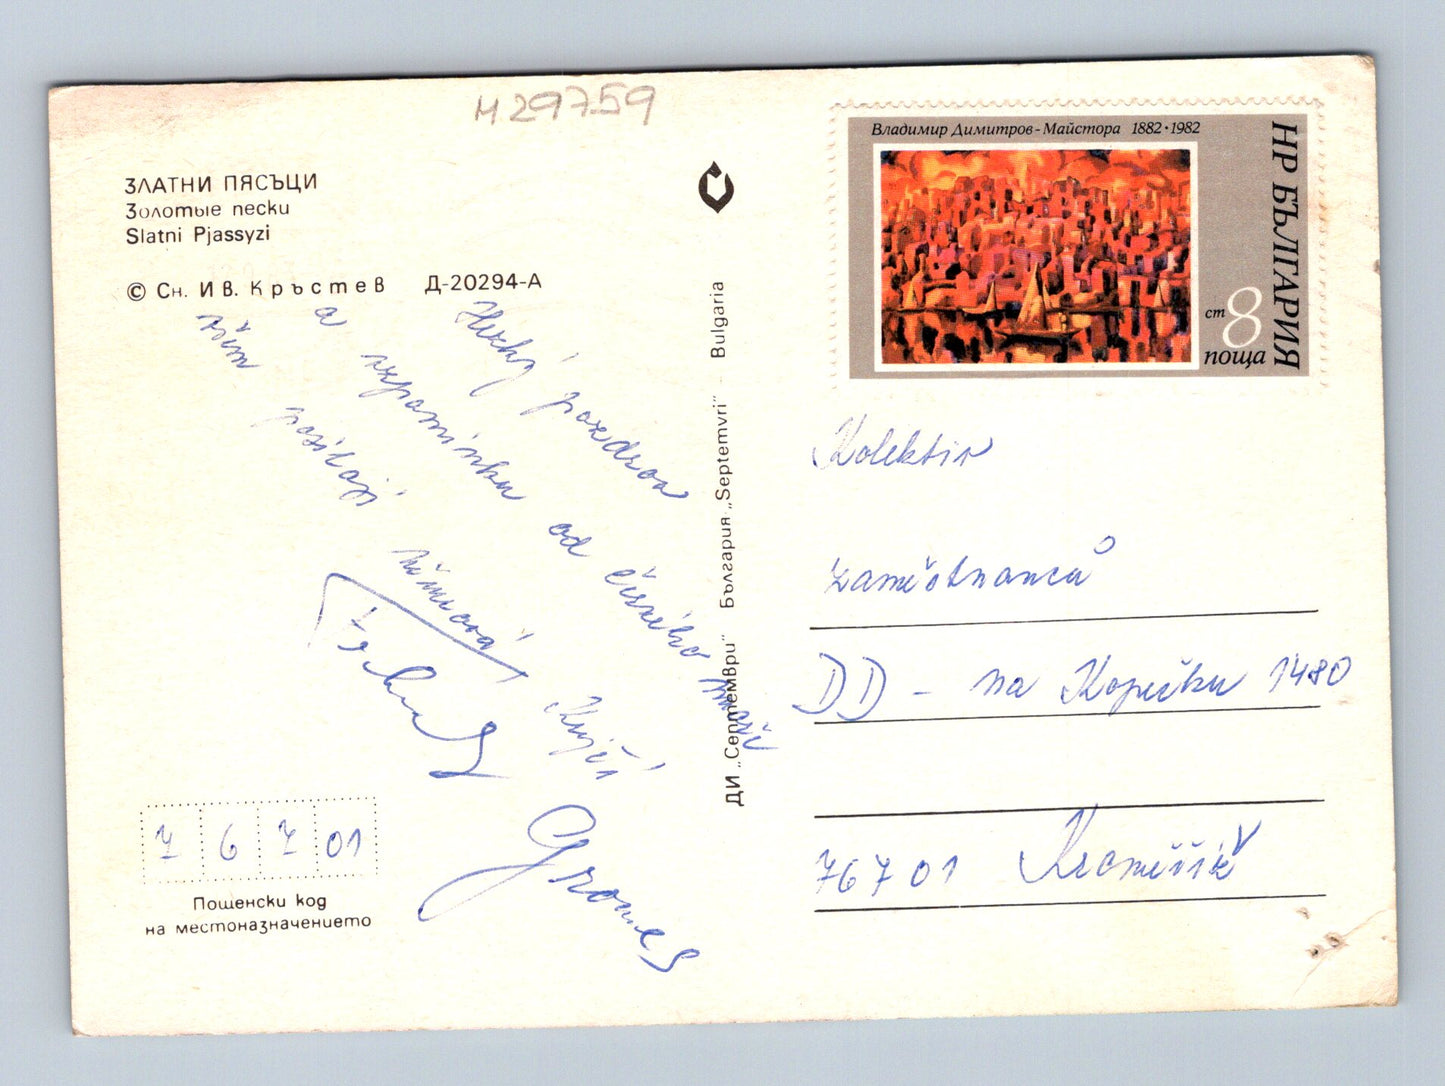 И 29759
ЗЛАТНИ ПЯСЪЦИ
Золотые пески
Slatni Pjassyzi
© Сн. Ив. Кръстев Д-20294-А
Hezký pozdrav
a vzpomínku od černého moře
Vám posílají
Grones
7 6 7 01
Пощенски код
на местоназначението
ДИ „Септември" България „Septemvri" Bulgaria
Владимир Димитров-Майстора 1882·1982
НР БЪЛГАРИЯ
ст 8
поща
Kolektiv
zaměstnanců
DD - na Kopečku 1480
76701 Kroměříž